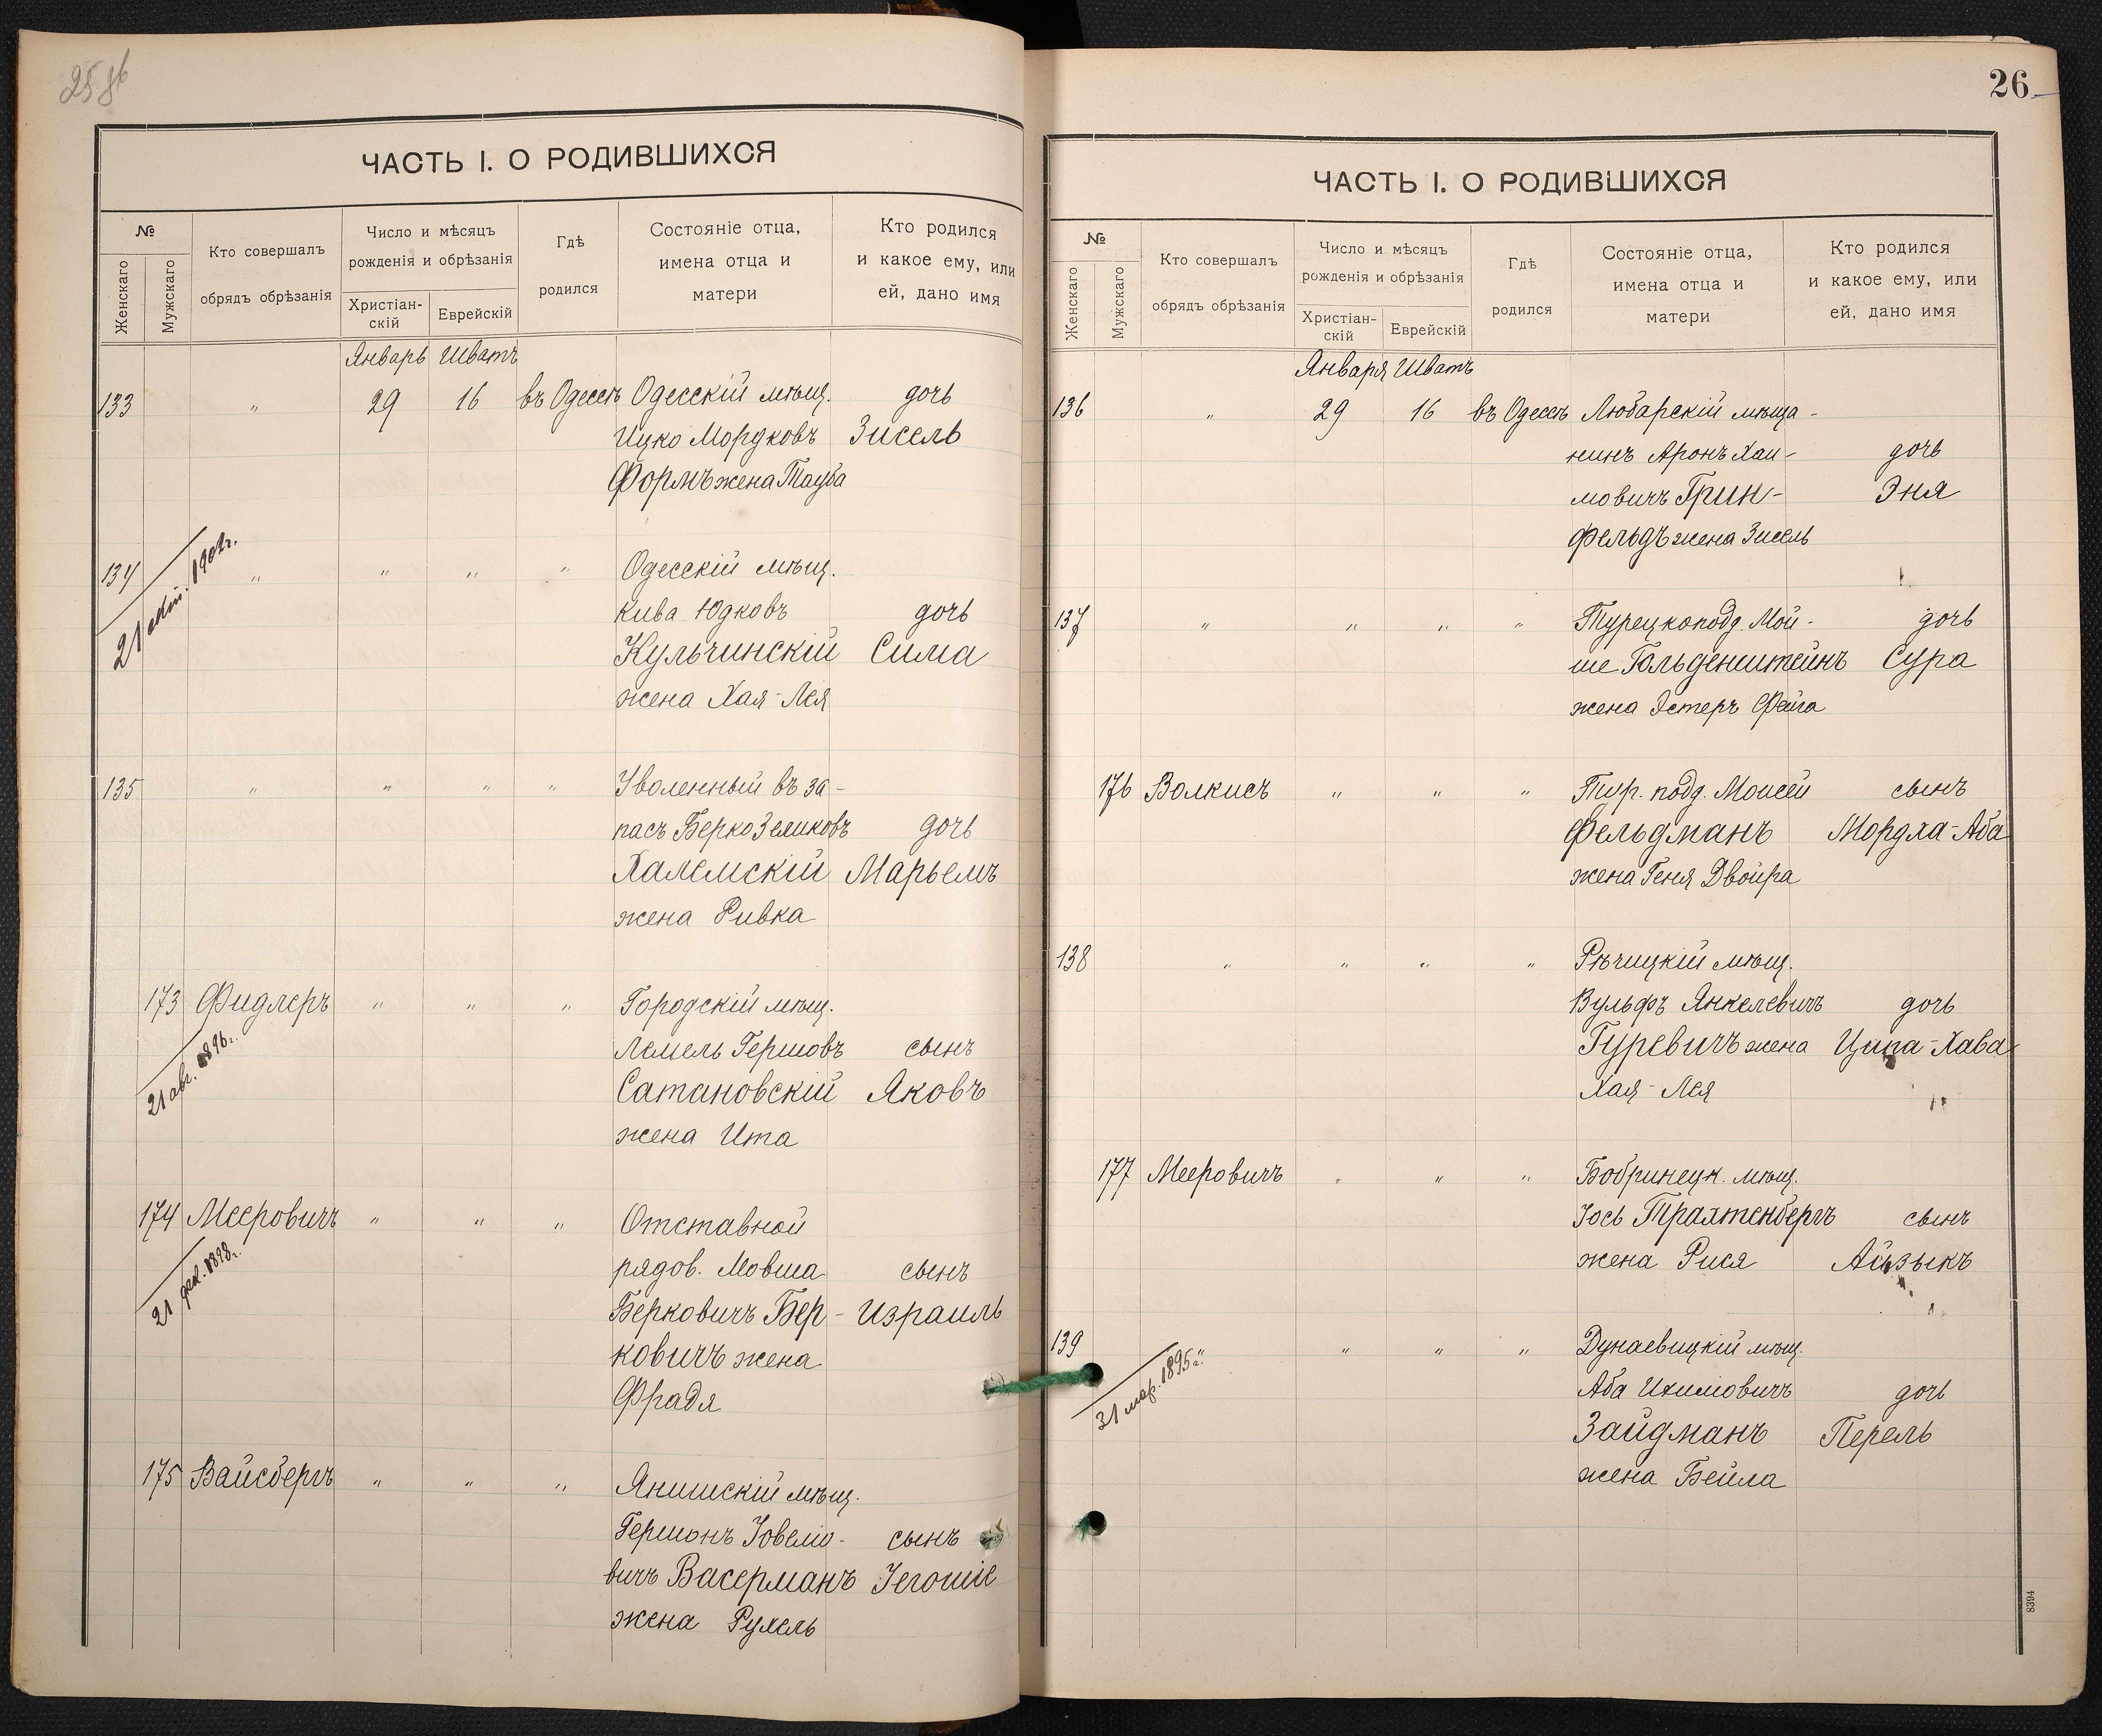 25 об
ЧАСТЬ I. О РОДИВШИХСЯ
№
Женскаго
Мужскаго
Кто совершалъ
обрядъ обрѣзанія
Число и мѣсяцъ
рожденія и обрѣзанія
Христіан-
скій
Еврейскій
Гдѣ
родился
Состояніе отца,
имена отца и
матери
Кто родился
и какое ему, или
ей, дано имя
Январь Шватъ
133 " 29 16 въ Одессѣ Одесскій мѣщ. дочь
Ицко Мордковъ Зисель
Формъ жена Тауба
134 " " " " Одесскій мѣщ.
21 1902г.
Кива Юдковъ дочь
Кульчинскій Сима
жена Хая-Лея
135 " " " " Уволенный въ за-
пасъ Берко Зеликовъ дочь
Халемскій Марьемъ
жена Ривка
173 Фидлеръ " " " Городскій мѣщ.
21 авг. 1896г.
Лемель Гершовъ сынъ
Сатановскій Яковъ
жена Ита
174 Мееровичъ " " " Отставной
21 дек. 1898г.
рядов. Мовша сынъ
Берковичъ Бер- Израиль
ковичъ жена
Фрадя
175 Вайсбергъ " " " Янишскій мѣщ.
Гершонъ Іовелю- сынъ
вичъ Васерманъ Іегошіе
жена Рухель
26
ЧАСТЬ I. О РОДИВШИХСЯ
№
Женскаго
Мужскаго
Кто совершалъ
обрядъ обрѣзанія
Число и мѣсяцъ
рожденія и обрѣзанія
Христіан-
скій
Еврейскій
Гдѣ
родился
Состояніе отца,
имена отца и
матери
Кто родился
и какое ему, или
ей, дано имя
Января Шватъ
136 " 29 16 въ Одессѣ Любарскій мѣща-
нинъ Аронъ Хаи- дочь
мовичъ Грин- Эня
фельдъ жена Зисель
137 " " " " Турецкоподд. Мой- дочь
ше Гольденштейнъ Сура
жена Эстеръ Фейга
176 Волкисъ " " " Тур. подд. Моисей сынъ
Фельдманъ Мордха-Аба
жена Геня Двойра
138 " " " " Рѣчицкій мѣщ.
Вульфъ Янкелевичъ дочь
Гуревичъ жена Ципа-Хава
Хая-Лея
177 Мееровичъ " " " Бобринецк. мѣщ.
Іось Трахтенбергъ сынъ
жена Рися Айзыкъ
139 " " " " Дунаевицкій мѣщ.
31 мар. 1895г.
Аба Ихимовичъ дочь
Зайдманъ Перель
жена Бейла
8394